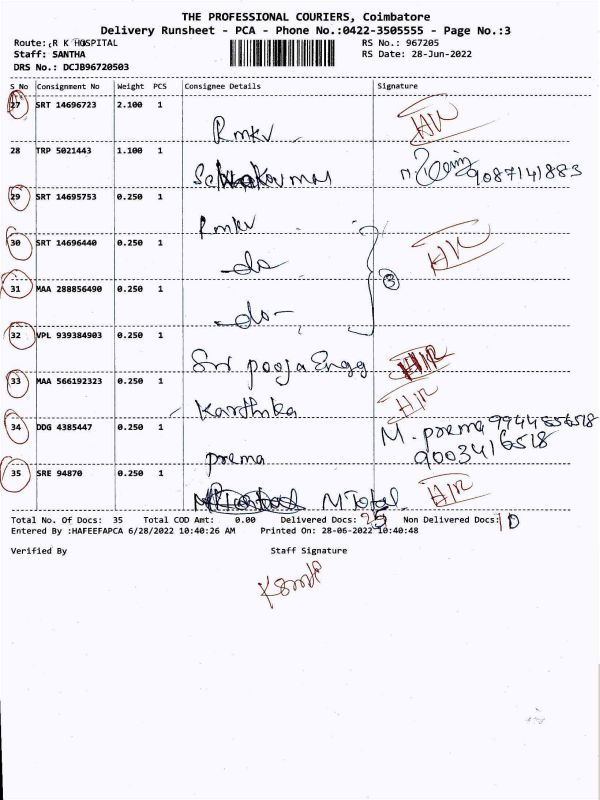 THE PROFESSIONAL COURIERS, Coimbatore
Delivery Runsheet - PCA - Phone No.:0422-3505555 - Page No.:3
Route: R K HOSPITAL RS No.: 967205
Staff: SANTHA RS Date: 28-Jun-2022
DRS No.: DCJB96720503
S No Consignment No Weight PCS Consignee Details Signature
27 SRT 14696723 2.100 1
Rmkv
28 TRP 5021443 1.100 1
9087141883
29 SRT 14695753 0.250 1
Rmkv
30 SRT 14696440 0.250 1
-do
31 MAA 288856490 0.250 1 3
-do-
32 VPL 939384903 0.250 1
Sri pooja Engg
33 MAA 566192323 0.250 1
Karthika
34 DDG 4385447 0.250 1 M. prema 9944856518
prema 9003416518
35 SRE 94870 0.250 1
M Total
Total No. Of Docs: 35 Total COD Amt: 0.00 Delivered Docs: 25 Non Delivered Docs: 10
Entered By :HAFEEFAPCA 6/28/2022 10:40:26 AM Printed On: 28-06-2022 10:40:48
Verified By Staff Signature